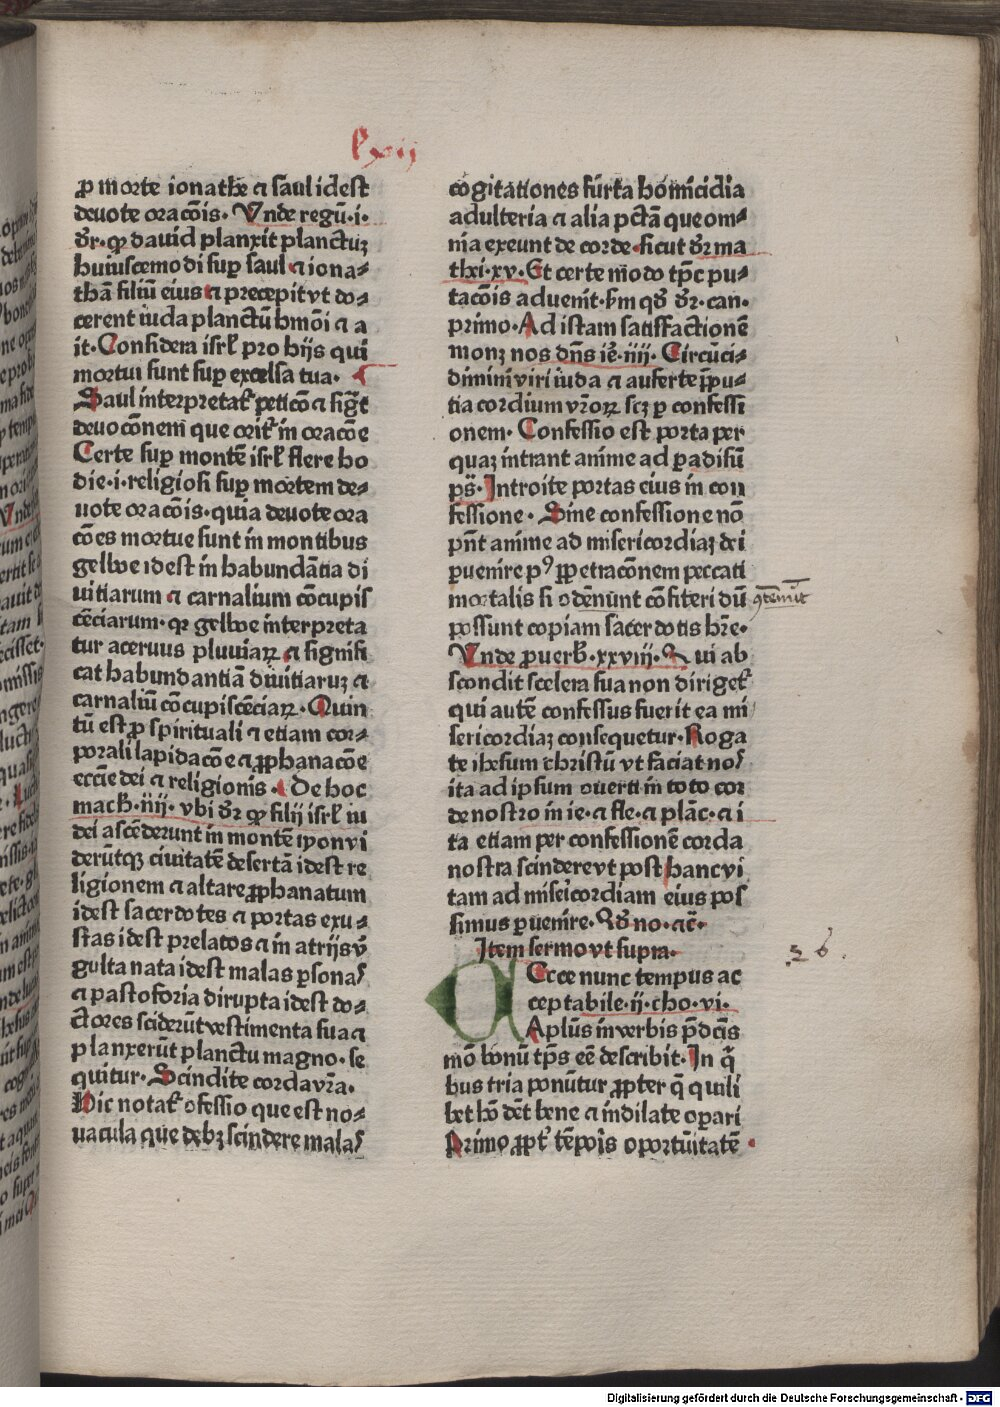 lxij
ꝓ morte ionathe ⁊ saul idest
deuote oracōis· Vnde regū·i·
dr̄·ꝙ dauid planxit planctuꝫ
huiuscemodi suꝑ saul ⁊ iona⸗
thā filiū eius ⁊ precepit vt do⸗
cerent iuda planctū hmōi ⁊ a
it· Considera isrl̄ pro hijs qui
mortui sunt suꝑ excelsa tua·
Saul interpretat᷑ peticō ⁊ sigt̄
deuocōnem que orit᷑ in oracōe
Certe suꝑ montē isrl̄ flere ho
die·i·religiosi suꝑ mortem de⸗
uote oracōis· quia deuote ora
cōes mortue sunt in montibus
gelboe idest in habundātia di
uitiarum ⁊ carnalium cōcupis
cēciarum· qr gelboe interpreta
tur aceruus pluuiaꝝ ⁊ signifi
cat habundantiā diuitiaruꝫ ⁊
carnaliū cōcupiscēciaꝝ· Quin
tū est ꝓ spirituali ⁊ etiam cor⸗
porali lapidacōe ⁊ ꝓphanacōe
ecclie dei ⁊ religionis· De hoc
mach̄·iiij· vbi dr̄ ꝙ filij isrl̄ iu
dei ascēderunt in montē syon vi
derūtqꝫ ciuitatē desertā idest re
ligionem ⁊ altare ꝓphanatum
idest sacerdotes ⁊ portas exu⸗
stas idest prelatos ⁊ in atrijs v̄
gulta nata idest malas ꝑsonas
⁊ pastoforia dirupta idest do⸗
ctores sciderūt vestimenta sua ⁊
planxerūt planctu magno· se
quitur· Scindite corda vr̄a·
Hic notat᷑ ꝯfessio que est no⸗
uacula que debꝫ scindere malas
cogitationes furta homicidia
adulteria ⁊ alia pctā que om⸗
nia exeunt de corde· sicut dr̄ ma
thei·xv· Et certe mōdo tp̄c pu⸗
tacōis aduenit· sm̄ qd̄ dr̄·can·
primo· Ad istam satisfactionē
monꝫ nos dn̄s ie᷑·iiij· Circūci⸗
dimini viri iuda ⁊ auferte p̄pu⸗
tia cordium vr̄oꝝ scꝫ ꝑ confessi
onem· Confessio est porta per
quaꝫ intrant anime ad ꝑadisū
ps̄· Introite portas eius in con
fessione· Sine confessione nō
pn̄t anime ad misericordiaꝫ dei
ꝑuenire pꝰ ꝑpetracōnem peccati
mortalis si ꝯdēnūnt cōfiteri dū
ꝯtēnūt
possunt copiam sacerdotis hr̄e·
Vnde ꝓuerb̄·xxviij· Qui ab
scondit scelera sua non diriget᷑
qui autē confessus fuerit ea mi
sericordiaꝫ consequetur· Roga
te ihesum christū vt faciat nos
ita ad ipsum ꝯuerti in toto cor
de nostro in ie·⁊ fle·⁊ plāc·⁊ i
ta etiam per confessionē corda
nostra scindere vt post hanc vi
tam ad mise᷑icordiam eius pos
simus ꝑuenire· Qd̄ no·⁊c̄·
Item sermo vt supra·
ECce nunc tempus ac
ceptabile·ij·cho·vi·
Aplūs in verbis p̄dcīs
mō bonū tp̄s eē describit· In q̄
bus tria ponūtur ꝓpter q̄ quili
bet hō dēt bene ⁊ indilate oꝑari
Primo ꝓpt᷑ tēpois oportūitatē
26.
Digitalisierung gefördert durch die Deutsche Forschungsgemeinschaft · DFG